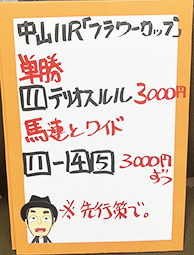 中山11R「フラワーカップ」
単勝
11デリオスルル 3000円
馬連とワイド
11-4 5 3000円ずつ
※先行策で。